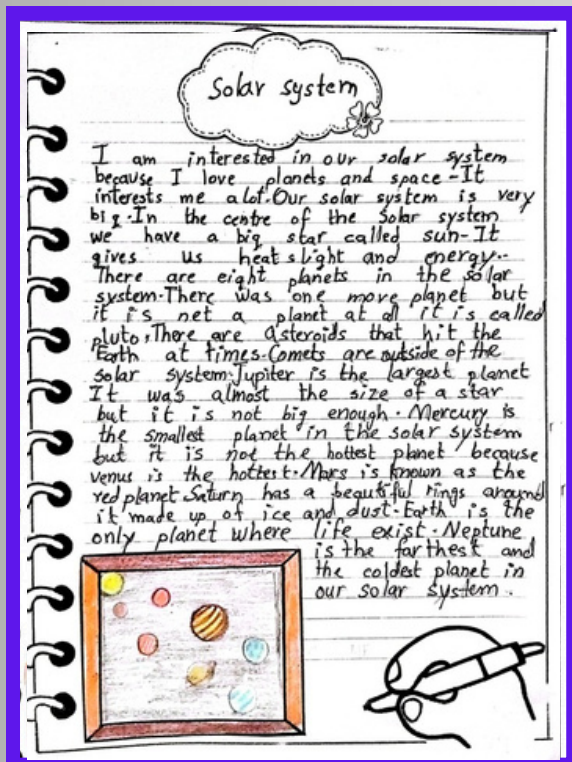 Solar system
I am interested in our solar system
because I love planets and space-It
interests me alot. Our solar system is very
big. In the centre of the solar system
we have a big star called sun-It
gives us heat slight and energy..
There are eight planets in the solar
system. There was one more planet but
it is not a planet at all it is called
pluto. There are asteroids that hit the
Earth at times. Comets are outside of the
solar system. Jupiter is the largest planet
It was almost the size of a star
but it is not big enough. Mercury is
the smallest planet in the solar system
but it is not the hottest planet because
venus is the hottest. Mars is known as the
red planet Saturn has a beautiful rings around
it made up of ice and dust. Earth is the
only planet where life exist. Neptune
is the farthest and
the coldest planet in
our solar system.